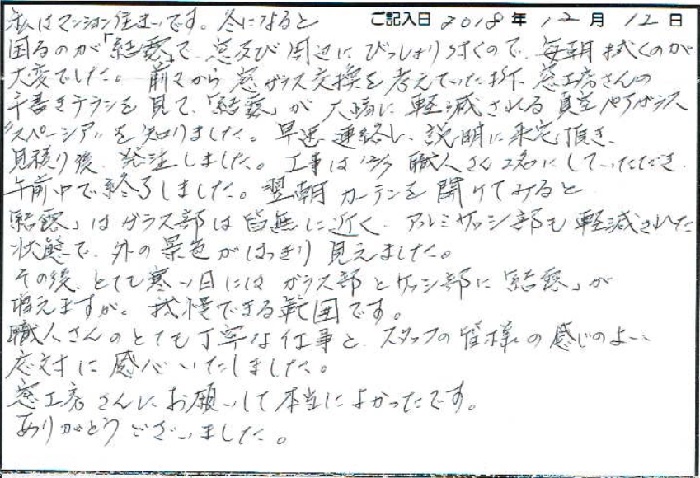 ご記入日 2018年 12月 12日
私はマンション住まいです。冬になると
困るのが「結露」で、窓及び周辺にびっしり付くので、毎朝拭くのが
大変でした。前々から窓ガラス交換を考えていた折、窓工房さんの
手書きチラシを見て、「結露」が大幅に軽減される真空ペアガラス
"スペーシア"を知りました。早速連絡し、説明に来宅頂き、
見積り後、発注しました。工事は 職人さん2名にしていただき、
午前中で終了しました。翌朝カーテンを開けてみると
「結露」はガラス部は皆無に近く、アルミサッシ部も軽減された
状態で、外の景色がはっきり見えました。
その後、とても寒い日にはガラス部とサッシ部に「結露」が
増えますが、我慢できる範囲です。
職人さんのとても丁寧な仕事と、スタッフの皆様の感じのよい
応対に感心いたしました。
窓工房さんにお願いして本当によかったです。
ありがとうございました。